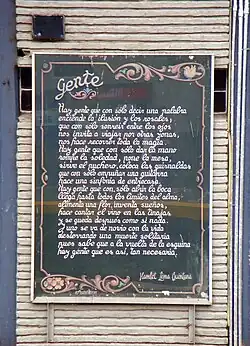 Gente
Hay gente que con solo decir una palabra
enciende la ilusión y los rosales;
que con solo sonreír entre los ojos
nos invita a viajar por otras zonas,
nos hace recorrer toda la magia.
Hay gente que con solo dar la mano
rompe la soledad, pone la mesa,
sirve el puchero, coloca las guirnaldas
que con solo empuñar una guitarra
hace una sinfonía de entrecasa.
Hay gente que con solo abrir la boca
llega hasta todos los límites del alma,
alimenta una flor, inventa sueños,
hace cantar el vino en las tinajas
y se queda después como si nada.
Y uno se va de novio con la vida
desterrando una muerte solitaria
pues sabe que a la vuelta de la esquina
hay gente que es así, tan necesaria,
Hamlet Lima Quintana